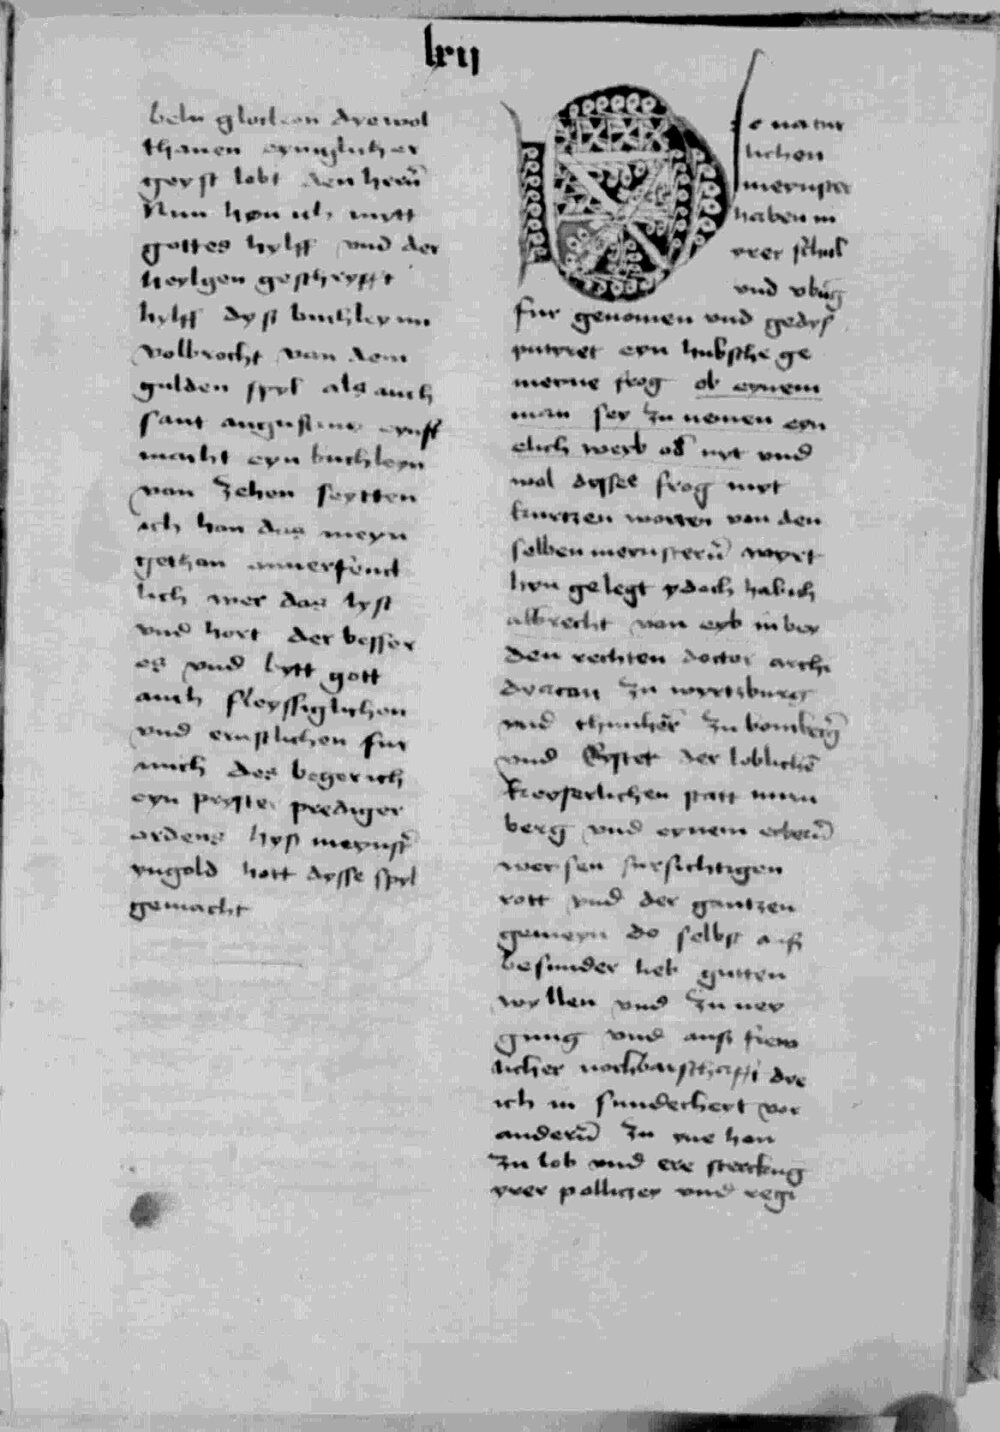 lxij
beln glocken die wol
thauen eyniglicher
geyst lobt den herñ
Nun hon ich mytt
gottes hylff vnd der
heylgen geschryfft
hylff dyß buchleynn
volbrocht von dem
gulden spyl als auch
sant augustinus eynß
macht eyn buchleyn
von zehen seytten
ich hon das meyn
gethan
lich wer das lyst
vnd hort der besser
es vnd bytt gott
auch fleyssiglichen
vnd ernstlichen fur
mich des beger ich
eyn pryster prediger
ordens hyß meynst̄
yngold hott dysse spyl
gemacht
Die natur
lichen
meynster
haben in
yrer schul
vnd vbūg
fur genomen vnd gedyß
putyret eyn hubsche ge
meyne frog ob eynem
man sey zu nemen eyn
elich weyb od̄ nyt vnd
wol dysse frog myt
kurtzen worten von den
selben meynsterñ wyrt
hyn gelegt ydoch hab ich
albrecht von eyb in bey
den rechten doctor archi
dyacon zu wyrtzburg
vnd thumher̄ zu bomberg̃
vnd Eystet der loblichē
keyserlichen statt nurn
berg vnd eynem erberñ
weysen fursichtigen
rott vnd der gantzen
gemeyn do selbst auß
besunder lieb gutten
wyllen vnd zu ney
gung vnd auß frew
licher nochbarschafft dye
ich in sunderheyt vor
anderñ zu yne hon
zu lob vnd ere sterckūg
yrer pollicey vnd regi